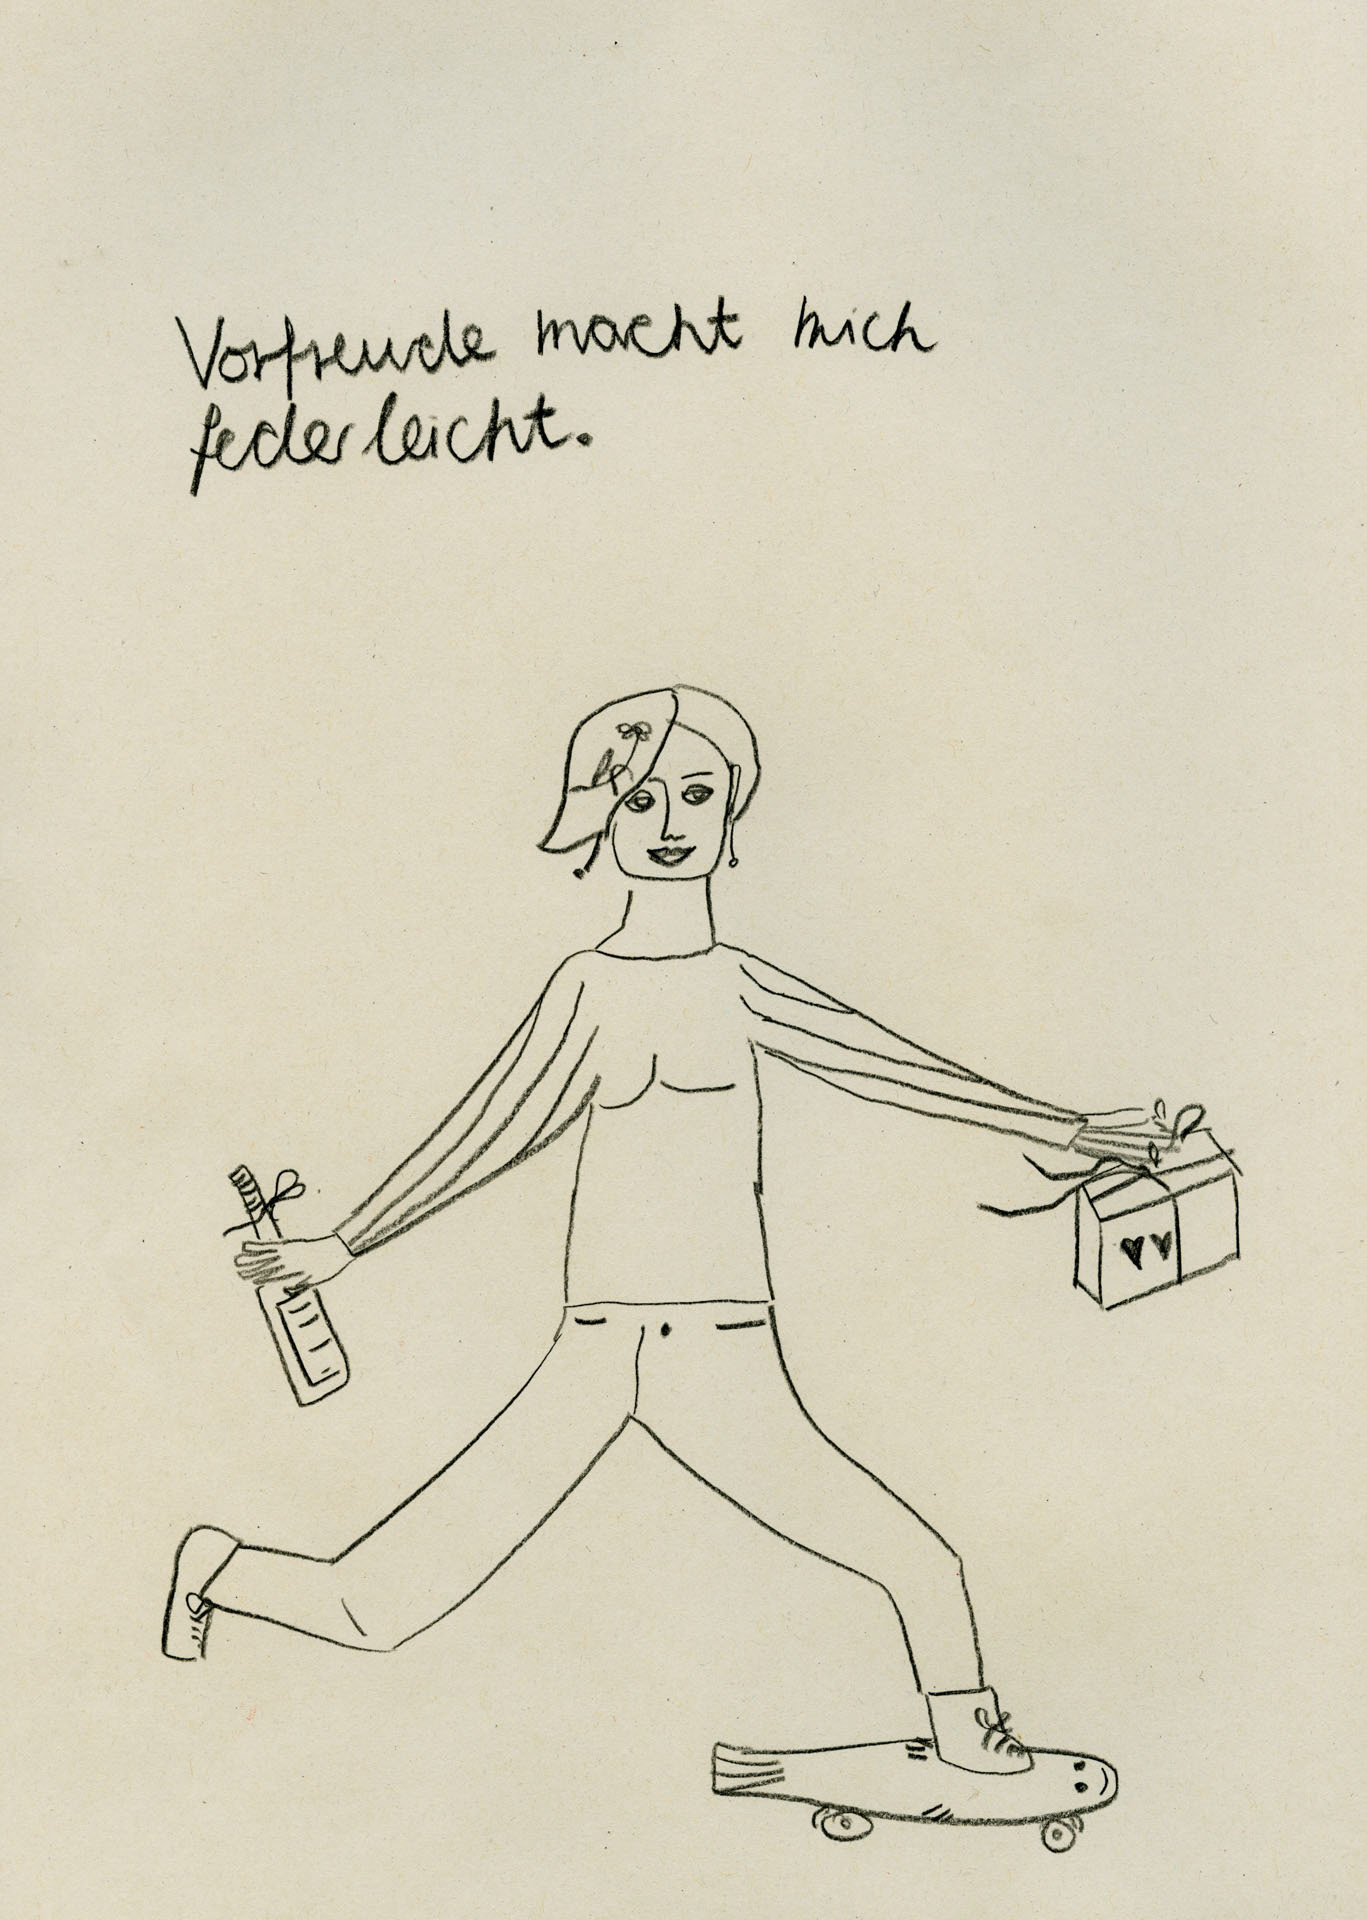 Vorfreude macht mich
federleicht.